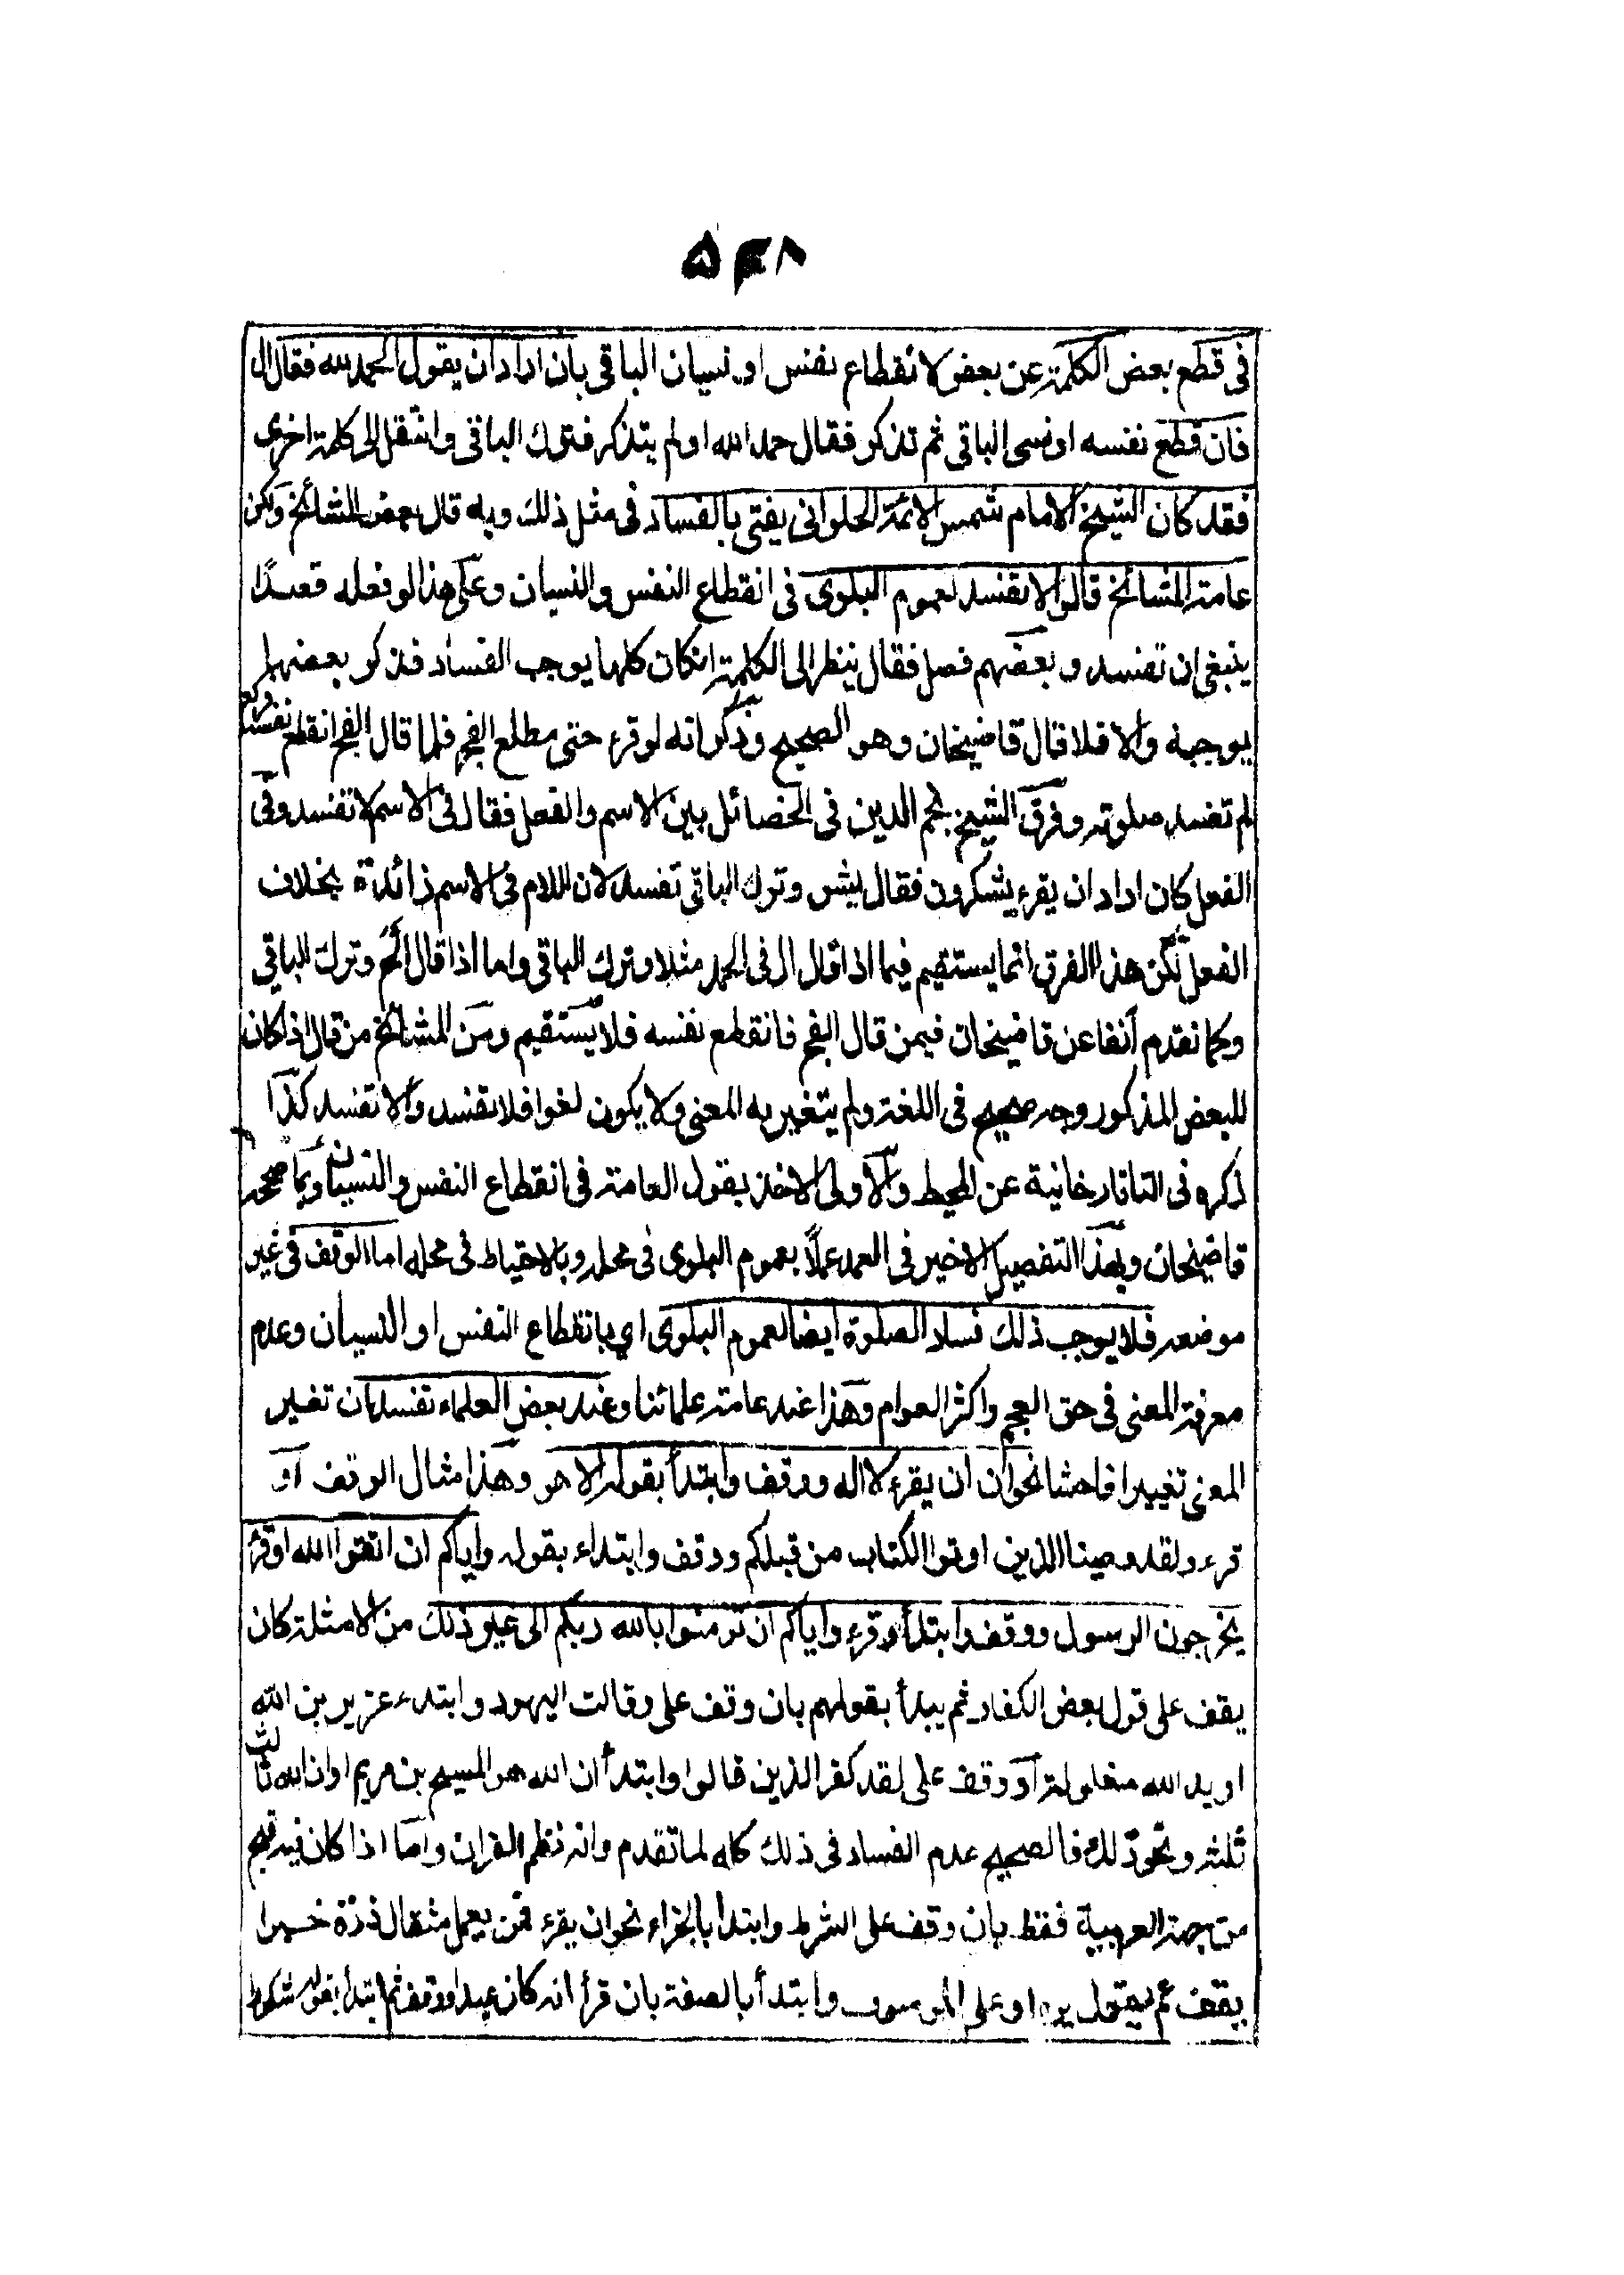 ۵۴۸
فى قطع بعض الكلمة عن بعض لانقطاع نفس او نسيان الباقى بان ارادان يقول الحمد لله فقال ال
فان قطع نفسه او نسى الباقى ثم تذكر فقال حمد الله او لم يتذكر فترك الباقى وانتقل الى كلمة اخرى
فقد كان الشيخ الامام شمس الائمة الحلوانى يفتى بالفساد فى مثل ذلك وبه قال بعض المشائخ ولكن
عامة المشائخ قالوا لا تفسد لعموم البلوى فى انقطاع النفس والنسيان وعلى هذا لو فعله قصدًا
ينبغى ان تفسد و بعضهم فصل فقال ينظر الى الكلمة انكان كلها يوجب الفساد فذكر بعضها
يوجبه والا فلا قال قاضيخان وهو الصحيح وذكر انه لو قرء حتى مطلع الفجر فلما قال الفج انقطع نفسه وركع
لم تفسد صلوته وفرق الشيخ نجم الدين فى الخصائل بين الاسم والفعل فقال فى الاسم لا تفسد وفى
الفعل كان ارادان يقرء يشكرون فقال يش وترك الباقى تفسد لان اللام فى الاسم زائدة بخلاف
الفعل لكن هذا الفرق انما يستقيم فيما اذا قال ال فى الحمد مثلا وترك الباقى واما اذا قال الحم وترك الباقى
وكما تقدم آنفا عن قاضيخان فيمن قال الفج فانقطع نفسه فلا يستقيم ومن المشائخ من قال اذا كان
للبعض المذكور وجه صحيح فى اللغة ولم يتغير به المعنى ولا يكون لغوا فلا تفسد والا تفسد كذا
ذكره فى التاتارخانية عن المحيط والاولى الاخذ بقول العامة فى انقطاع النفس والنسيان وبما صححه
قاضيخان وبهذا التفصيل الاخير فى العمد عملًا بعموم البلوى فى محله وبالاحتياط فى محله اما الوقف فى غير
موضعه فلا يوجب ذلك فساد الصلوة ايضا لعموم البلوى اي بانقطاع النفس او النسيان وعدم
معرفة المعنى فى حق العجم واكثر العوام وهذا عند عامة علمائنا وعند بعض العلماء تفسد ان تغير
المعنى تغييرا فاحشا نحوان ان يقرء لا اله ووقف وابتدأ بقوله الا هو وهذا مثال الوقف او
قرء ولقد وصينا الذين اوتوا الكتاب من قبلكم ووقف وابتداء بقوله واياكم ان اتقوا الله اوقرء
يخرجون الرسول ووقف وابتدأ وقرء واياكم ان تومنوا بالله ربكم الى غير ذلك من الامثلة كان
يقف على قول بعض الكفار ثم يبدأ بقولهم بان وقف على وقالت اليهود وابتدء عزير بن الله
او يد الله مغلولة او وقف على لقد كفر الذين قالوا وابتدأ ان الله هو المسيح بن مريم او ان الله ثالث
ثلثة ونحو ذلك فالصحيح عدم الفساد فى ذلك كله لما تقدم وانه نظم القران واما اذا كان فيه قبح
من جهة العربية فقط بان وقف على الشرط وابتدأ بالجزاء نحوان يقرء فمن يعمل مثقال ذرة خيرا
يقف ثم يقول يره او على الموصوف وابتدأ بالصفة بان قرأ انه كان عبدا ووقف ثم ابتدأ بقوله شكورا